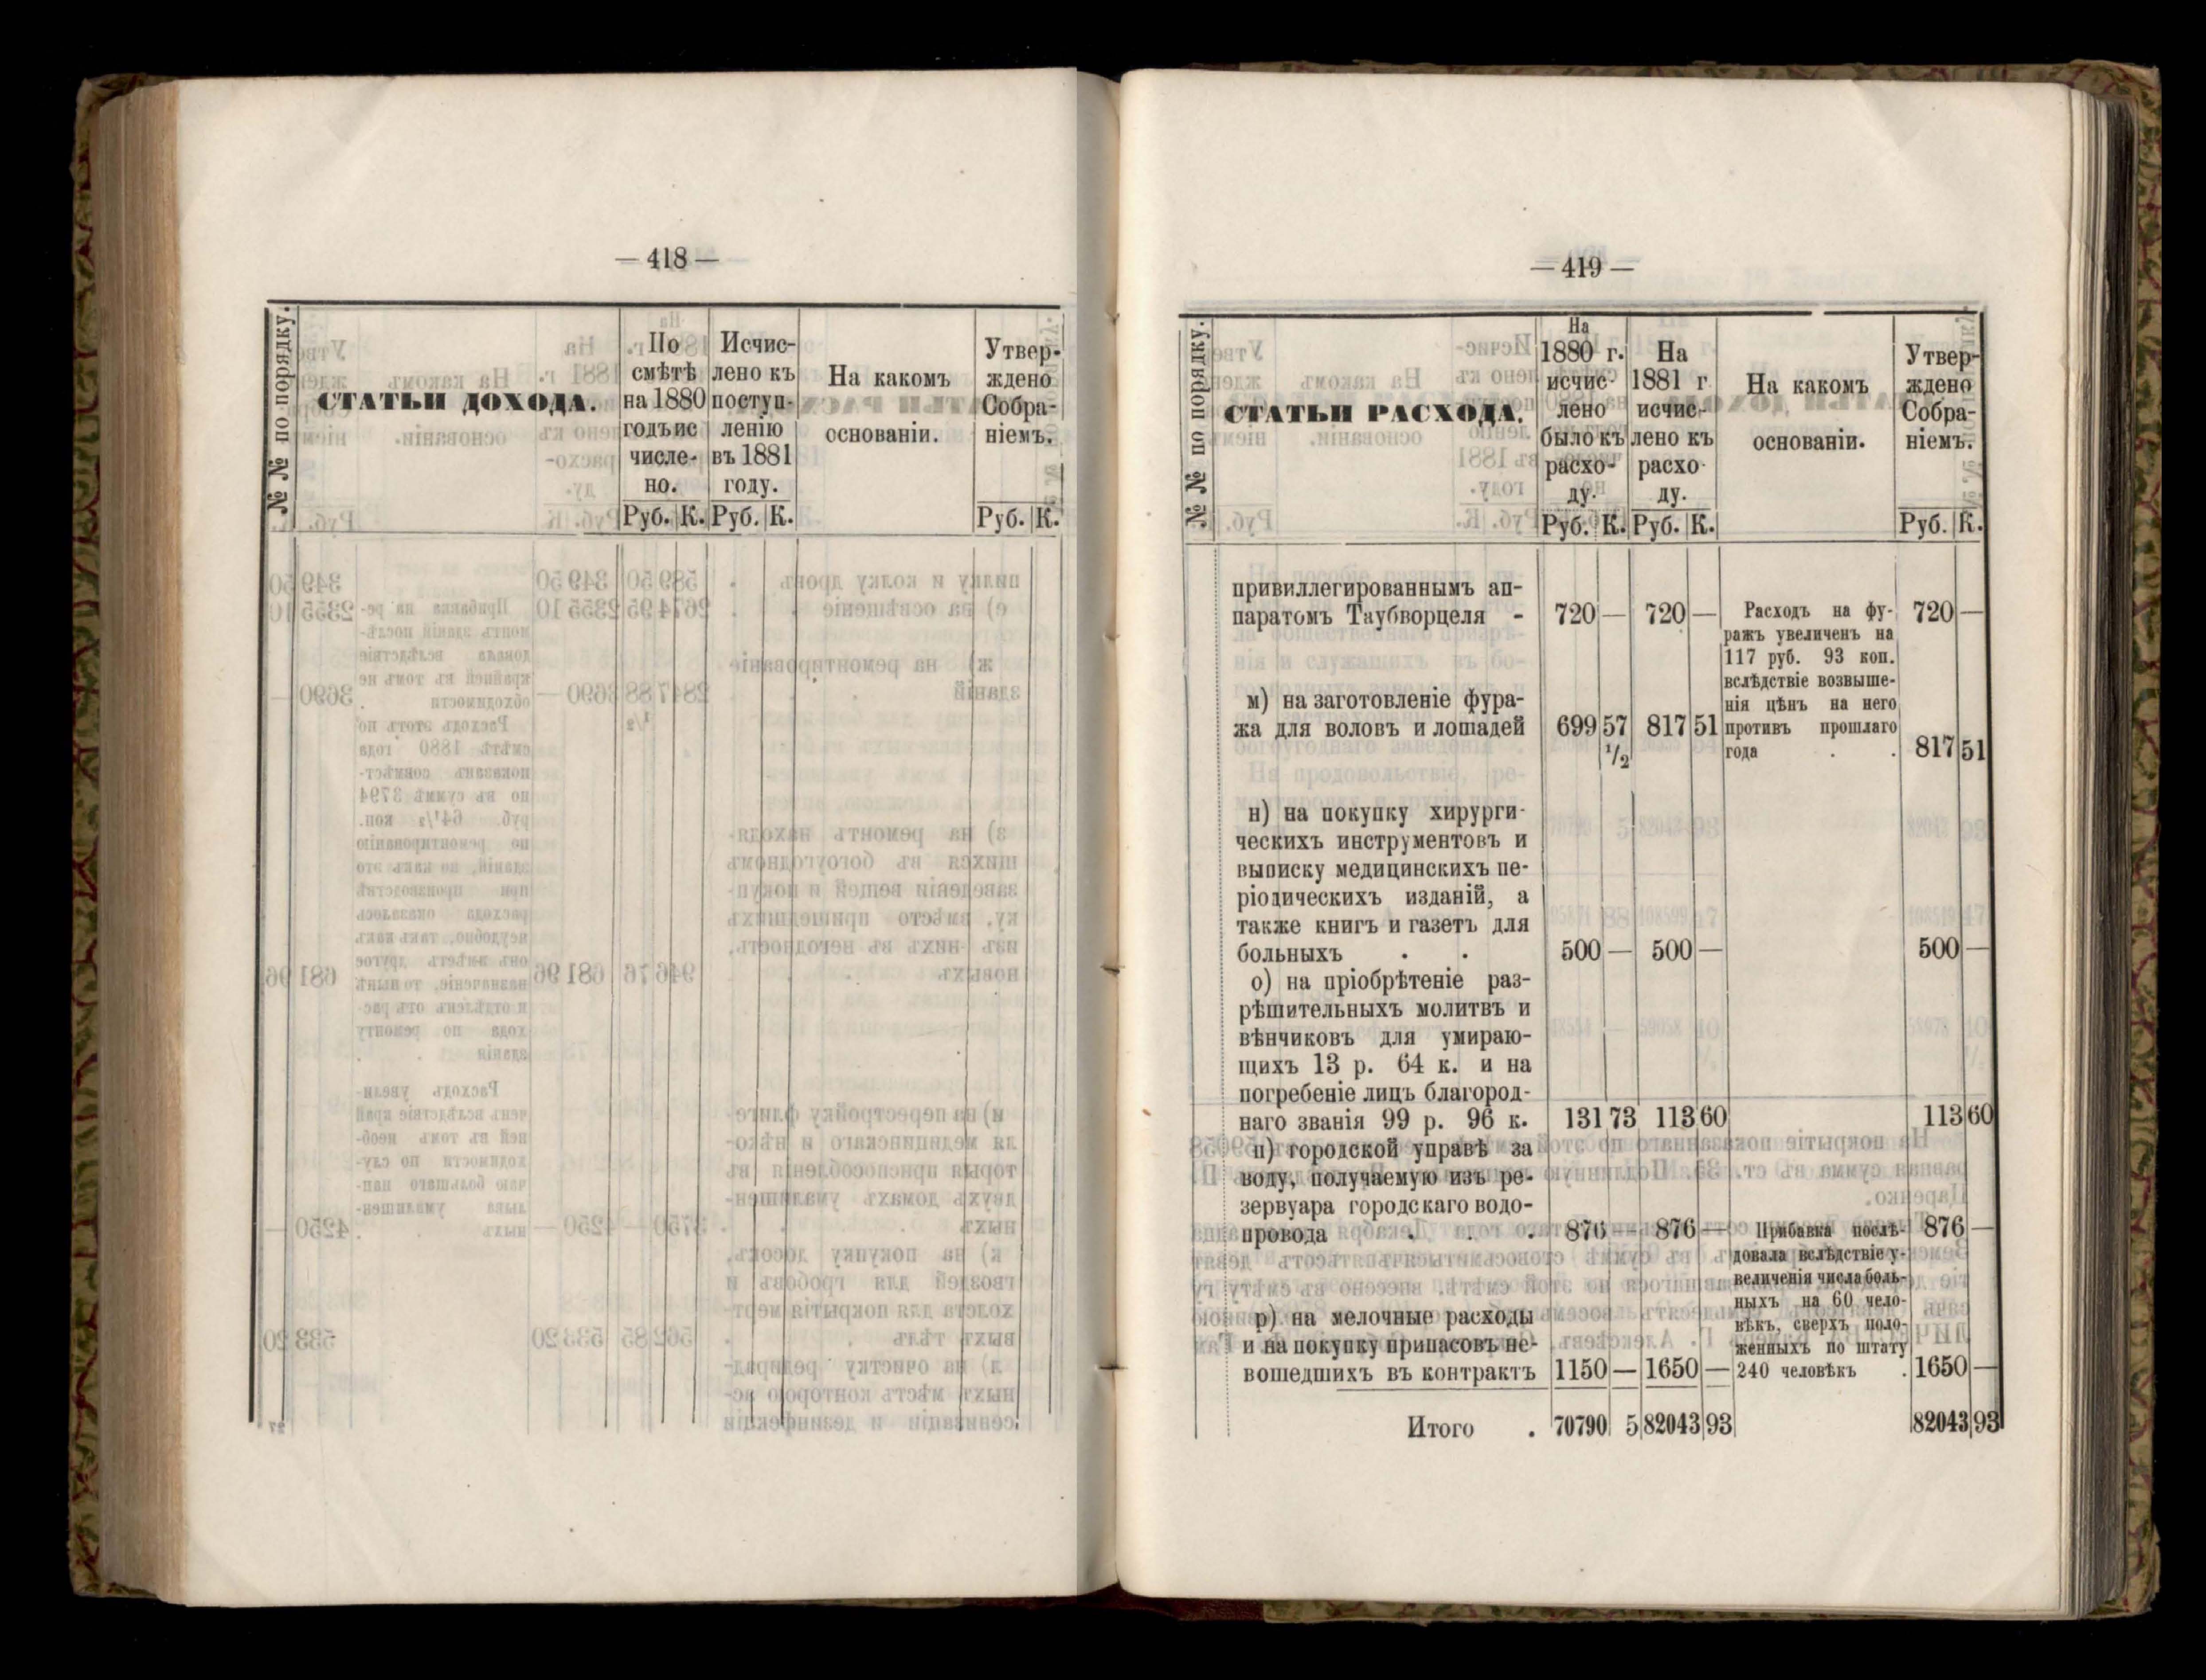 — 418 —
№ № по порядку.
СТАТЬИ ДОХОДА.
По
смѣтѣ
на 1880
годъ ис
числе-
но.
Руб. К.
Исчис-
лено къ
поступ-
ленію
въ 1881
году.
Руб. К.
На какомъ
основаніи.
Утвер-
ждено
Собра-
ніемъ.
Руб. К.
— 419 —
№ № по порядку.
СТАТЬИ РАСХОДА.
На
1880 г.
исчис-
лено
было къ
расхо-
ду.
Руб. К.
На
1881 г
исчис-
лено къ
расхо-
ду.
Руб. К.
На какомъ
основаніи.
Утвер-
ждено
Собра-
ніемъ.
Руб. К.
привиллегированнымъ ап-
паратомъ Таубворцеля - 720 — 720 — 720 —
Расходъ на фу-
ражъ увеличенъ на
117 руб. 93 коп.
вслѣдствіе возвыше-
нія цѣнъ на него
противъ прошлаго
года . .
м) на заготовленіе фура-
жа для воловъ и лошадей 699 57 1/2 817 51 817 51
н) на покупку хирурги-
ческихъ инструментовъ и
выписку медицинскихъ пе-
ріодическихъ изданій, а
также книгъ и газетъ для
больныхъ . . 500 — 500 — 500 —
о) на пріобрѣтеніе раз-
рѣшительныхъ молитвъ и
вѣнчиковъ для умираю-
щихъ 13 р. 64 к. и на
погребеніе лицъ благород-
наго званія 99 р. 96 к. 131 73 113 60 113 60
п) городской управѣ за
воду, получаемую изъ ре-
зервуара городскаго водо-
провода . . . 876 — 876 — 876 —
Прибавка послѣ-
довала вслѣдствіе у-
величенія числа боль-
ныхъ на 60 чело-
вѣкъ, сверхъ поло-
женныхъ по штату
240 человѣкъ .
р) на мелочные расходы
и на покупку припасовъ не-
вошедшихъ въ контрактъ 1150 — 1650 — 1650 —
Итого . 70790 5 82043 93 82043 93